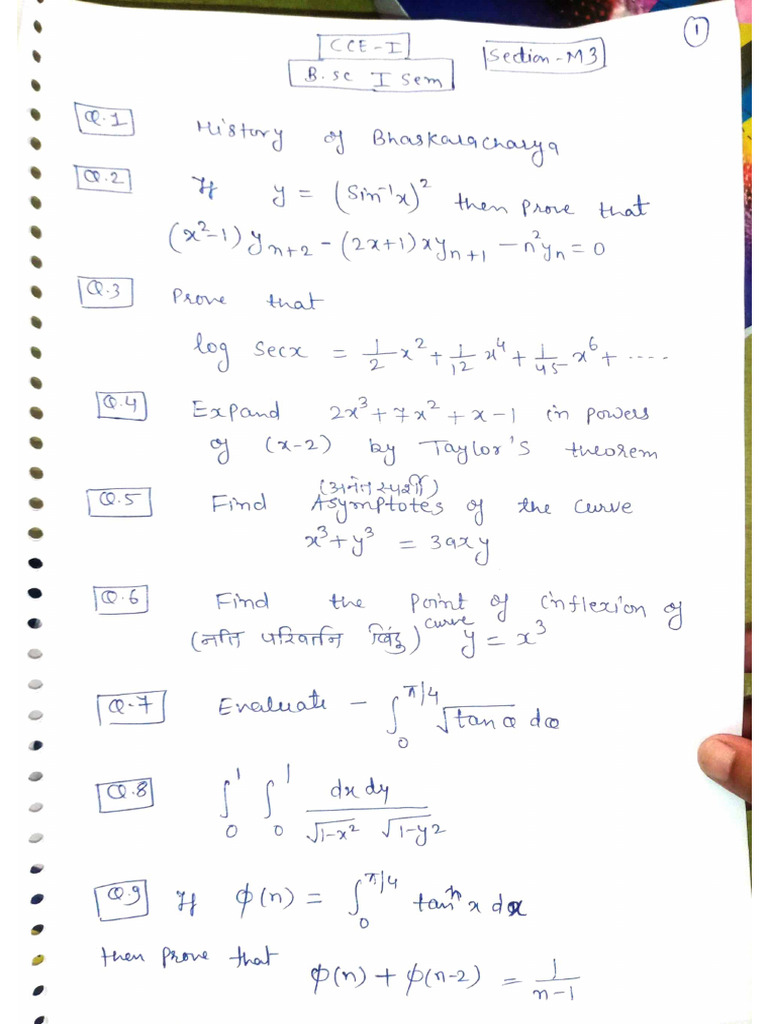 1
CCE-I
Section-M3
B.sc I Sem
Q.1 History of Bhaskaracharya
Q.2 If y = (Sin⁻¹x)² then prove that
(x²-1) yₙ₊₂ - (2x+1)xyₙ₊₁ - n²yₙ = 0
Q.3 Prove that
log secx = 1/2 x² + 1/12 x⁴ + 1/45 x⁶ + ....
Q.4 Expand 2x³+7x²+x-1 in powers
of (x-2) by Taylor's theorem
(अनंत स्पर्शी)
Q.5 Find Asymptotes of the curve
x³+y³ = 3axy
Q.6 Find the point of inflexion of
(नति परिवर्तन बिंदु) curve y = x³
Q.7 Evaluate - ∫₀^π/4 √tanθ dθ
Q.8 ∫₀¹ ∫₀¹ dx dy / √1-x² √1-y²
Q.9 If φ(n) = ∫₀^π/4 tanⁿx dx
then prove that
φ(n) + φ(n-2) = 1/n-1